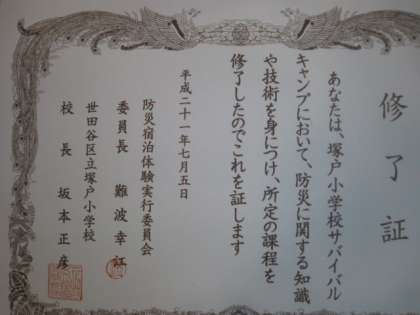 修了証
あなたは、塚戸小学校サバイバル
キャンプにおいて、防災に関する知識
や技術を身につけ、所定の課程を
修了したのでこれを証します
平成二十一年七月五日
防災宿泊体験実行委員会
委員長 難波幸江
世田谷区立塚戸小学校
校長 坂本正彦